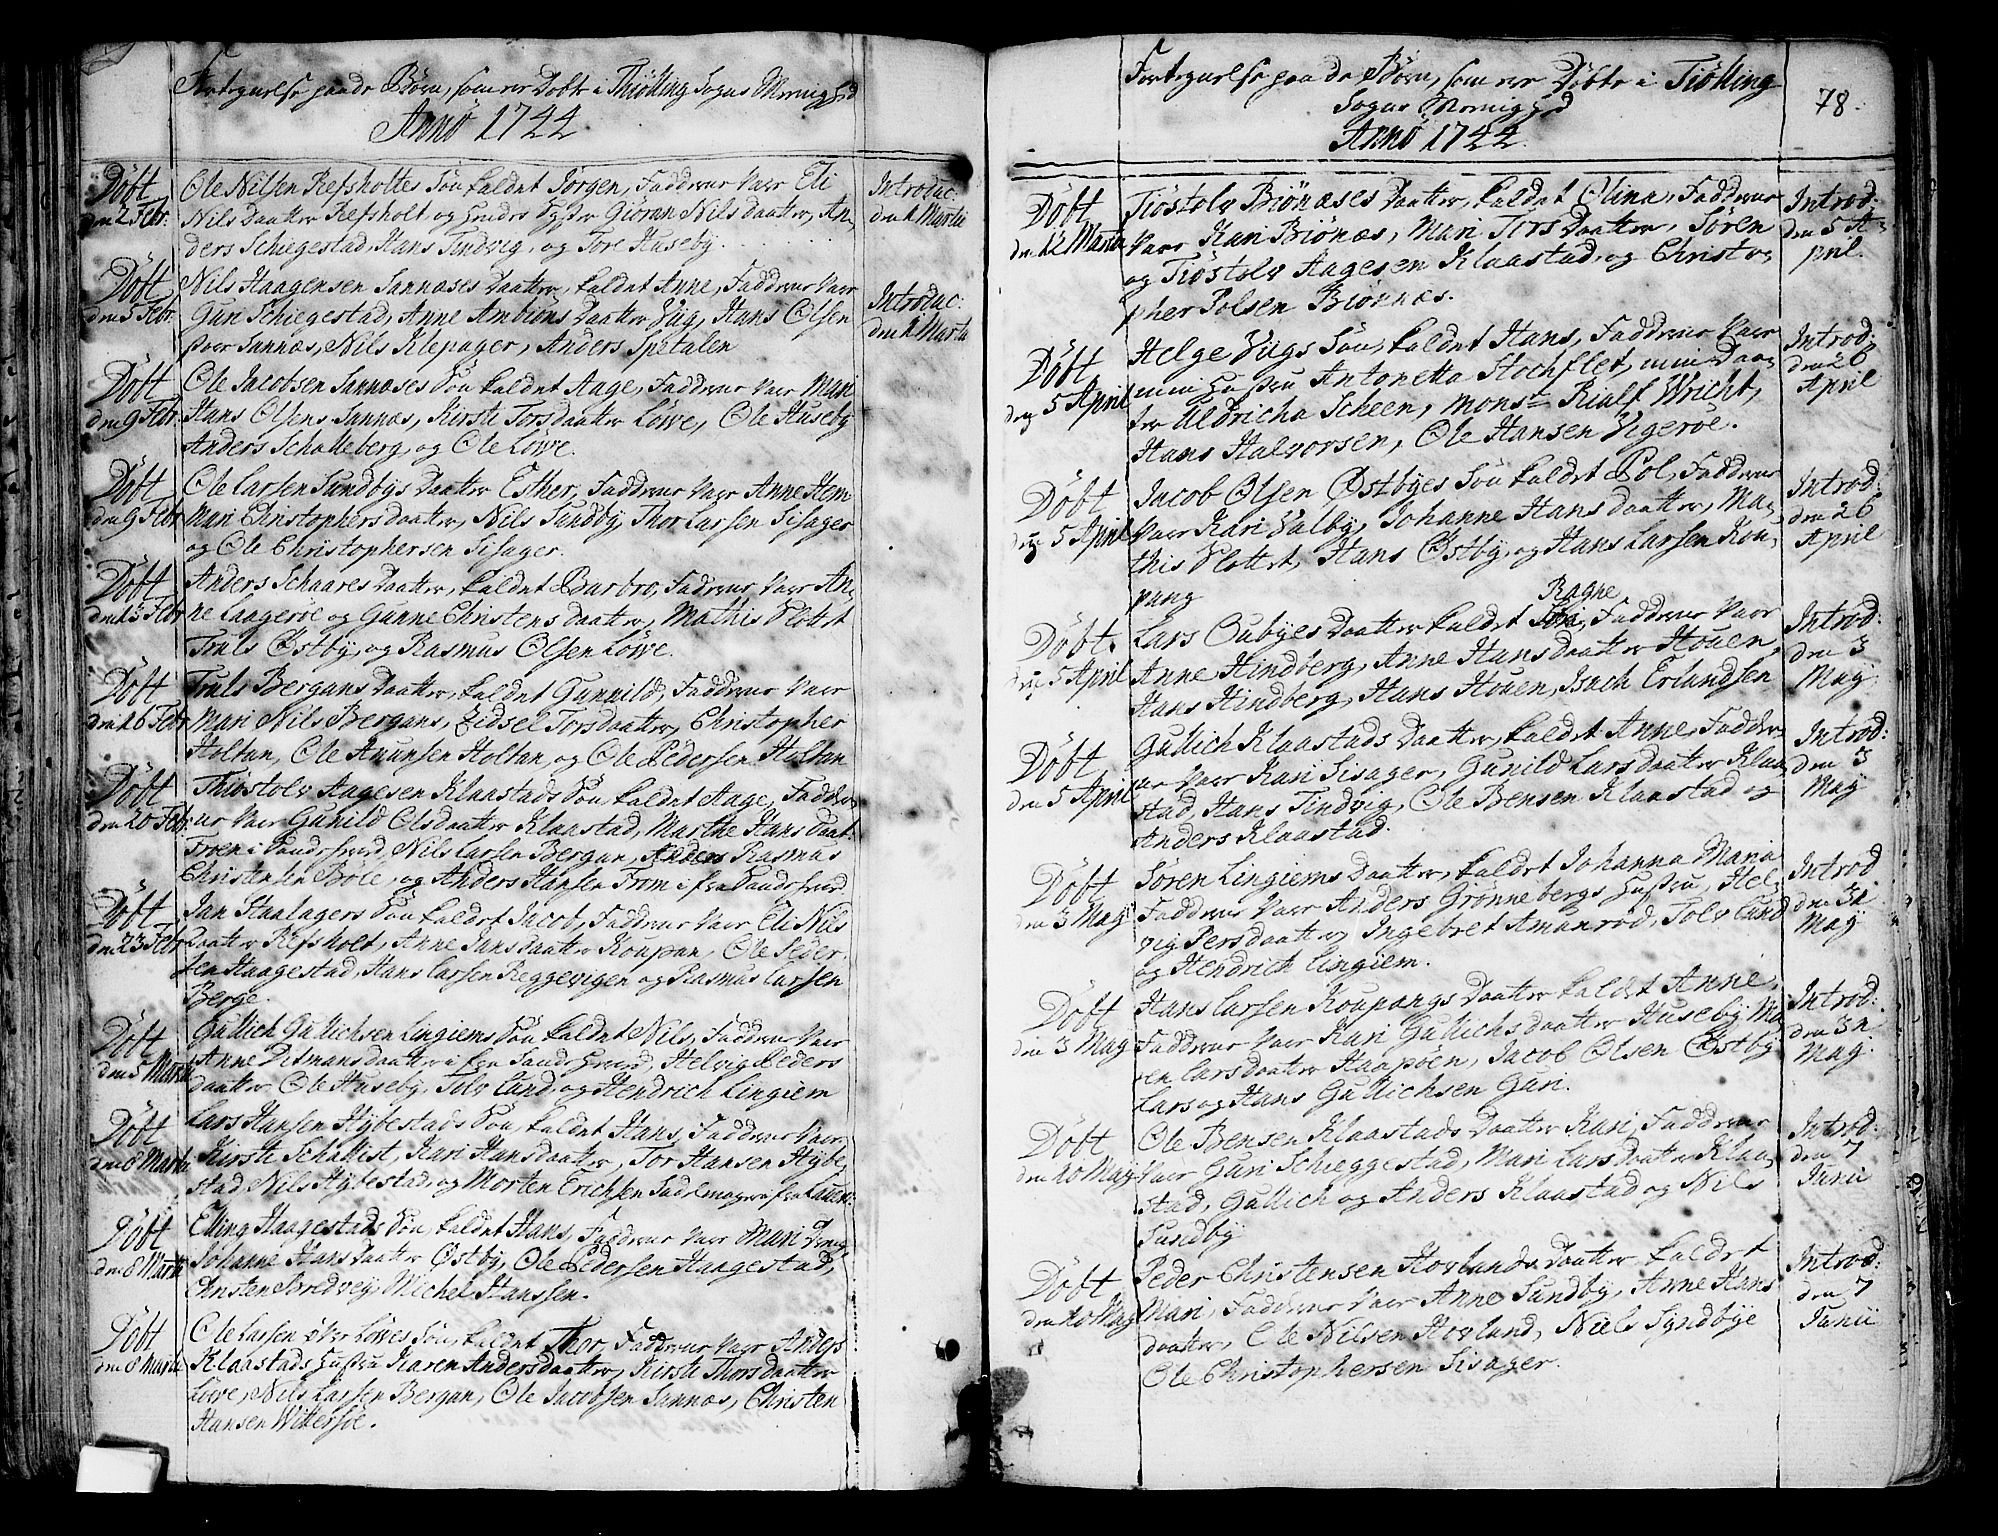 Fortegnelse paa de Børn, som ere Döbte i Thiölling Sogns Menighed
Anno 1744
Döbt
den 2 Febr:
Ole Nilsen Refsholtes Sön kaldet Jørgen, Fadderne vare Eli
Nils Daatter Refsholt og hendes Syster Giöran Nils daatter, An-
ders Schiegestad, Hans Tindvig, og Tore Huseby.
Introduc:
den 1 Martii
Döbt
den 5 Febr.
Nils Haagensen Sannæses Daatter, kaldet Anne, Fadderne vare
Guri Schiegestad, Anne Ambiöns Daatter Vug, Hans Olsen
Sannæs, Nils Klepager, Anders Spetalen
Introduc:
den 1 Martii
Döbt
den 9 Febr:
Ole Jacobsen Sannæses Sön kaldet Aage, Fadderne vare Mari
Hans Olsens Sannæs, Kirste Torsdaatter Löwe, Ole Huseby
Anders Schalleberg, og Ole Löwe.
Döbt
den 9 Febr
Ole Larsen Sundbys Daatter Esther, Fadderne vare Anne Hem
Mari Christophersdaatter, Nils Sundby, Thor Larsen Sisager
og Ole Christophersen Sisager.
Döbt
den 13 Febr
Anders Schaares Daatter, kaldet Barbro, Fadderne vare An-
ne Laageröe og Gunne Christens daatter, Mathis Plottet
Truls Østby, og Rasmus Olsen Löwe.
Döbt
den 16 Febr
Truls Bergans Daatter, kaldet Gunnild, Fadderne vare
Mari Nils Bergans, Zidsel Torsdaatter, Christopher
Holtan, Ole Amunsen Holtan, og Ole Pedersen Holtan
Döbt
den 20 Febr.
Thiöstolv Aagesen Klaastads Sön kaldet Aage, Fadder-
ne vare Gunild Olsdaatter Klaastad, Marthe Hans daat-
Troen i Sandeherred, Nils Larsen Bergan, Rasmus
Christensen Böle, og Anders Hansen From i fra Sandeherred
Döbt
den 23 Febr
Jan Staalagers Sön kaldet Jacob, Fadderne vare Eli Nils
daatter Refsholt, Anne Jansdaatter Koupan, Ole Peder-
sen Haagestad, Hans Larsen Reggevigen og Rasmus Larsen
Berge.
Döbt
den 5 Martii
Gullich Gullichsen Lingiems Sön kaldet Nils, Fadderne vare
Anne Ditmansdaatter i fra Sandeherred, Helvig Peders
daatter, Ole Huseby, Tolv Lund og Hendrich Lingiem
Döbt
den 8 Martii
Lars Hansen Hÿbestads Sön, kaldet Hans, Fadderne vare
Kirste Schallist, Kari Hansdaatter, Tor Hansen Hÿbe-
stad, Nils Hÿbestad, og Morten Erichsen Sadelmager i fra Laur:
Döbt
den 8 Martii
Elling Haagestads Sön, kaldet Hans, Fadderne vare Mari
Johanne Hans Daatter Østby, Ole Pedersen Haagestad,
Christen Bredvej, Michel Hanssen.
Döbt
den 8 Martii
Ole Larsen Löwes Sön, kaldet Thor, Fadderne vare Anders
Klaastads Hustru Karen Andersdaatter, Kirste Thorsdaatter
Löwe, Nils Larsen Bergan, Ole Jacobsen Sannæs, Christen
Hansen Wittersöe.
Fortegnelse paa de Børn, som ere Döbte i Tiölling
Sogns Menighed
Anno 1744
78.
Döbt
den 12 Martii
Tiöstolv Biönæses Daatter, kaldet Olina, Fadderne
vare Kari Biönæs, Mari Tors Daatter, Sören
og Tiöstolv Aagesen Klaastad, og Christo-
pher Polsen Biönnæs.
Introd:
den 5 A-
pril.
Döbt
den 5 April
Helge Vugs Sön, kaldet Hans, Fadderne vare
min Hustru Antonetta Stochflet, min Daa-
ter Aldricha Scheen, mons Rialf Wricht,
Hans Halvorsen, Ole Hansen Vigeröe.
Introd.
den 26
April
Döbt
den 5 April
Jacob Olsen Østbyes Sön kaldet Pol, Fadderne
vare Kari Valby, Johanne Hans daatter, Ma-
this Plottet, Hans Østby, og Hans Larsen Kou-
pang
Introd:
den 26
April
Döbt.
den 5 April
Ragne
Lars Oubyes Daatter kaldet Siri, Fadderne vare
Anne Hindberg, Anne Hans daatter Houen,
Hans Hindberg, Hans Houen, Isach Erlandsen
Introd:
den 3
Maÿ
Döbt
den 5 April
Gullich Klaastads Daatter, kaldet Anne, Fadder-
ne vare Kari Sisager, Gunild Larsdaatter Klaa-
stad, Hans Tindvig, Ole Bensen Klaastad og
Anders Klaastad.
Introd:
den 3
Maÿ
Döbt
den 3 Maÿ
Sören Lingiems Daatter, kaldet Johanna Maria
Fadderne vare Anders Grönnebergs Hustru, Hel-
vig Persdaatter, Ingebret Amunröd, Tolv Lund
og Hendrich Lingiem.
Introd
den 31
Maÿ
Döbt
den 3 Maÿ
Hans Larsen Koupangs Daatter kaldet Anne,
Fadderne vare Kari Gullichsdaatter Huseby, Ma-
ren Larsdaatter Haapöen, Jacob Olsen Østby
Lars og Hans Gullichsen Guri.
Introd:
den 31
Maÿ.
Döbt
den 10 Maÿ
Ole Bensen Klaastads Daatter Kari, Fadderne
vare Guri Schieggestad, Mari Larsdaatter Klaa-
stad, Gullich og Anders Klaastad og Nils
Sundby
Introd:
den 7
Junii
Döbt
den 10 Maÿ
Peder Christensen Hovlands Daatter kaldet
Mari, Fadderne vare Anne Sundby, Anne Hans
daatter, Ole Nilsen Hovland, Niels Syndbye
Ole Christophersen Sisager.
Introd:
den 7
Junii